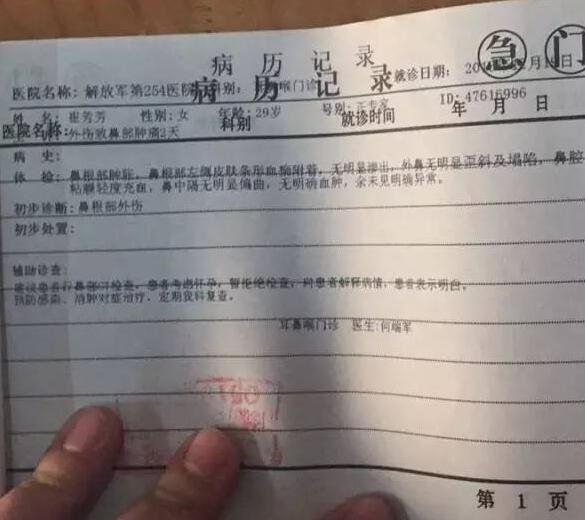 病 历 记 录
急 门
医院名称: 解放军第254医院 科别: 喉门诊 就诊日期:
病 历 记 录
姓 名: 崔芳芳 性别: 女 年龄: 29岁 号别: 正专家 ID: 47616996
医院名称: 科别 就诊时间 年 月 日
外伤致鼻部肿痛2天
病 史:
体 检: 鼻根部肿胀, 鼻根部左侧皮肤条形血痂附着, 无明显渗出, 外鼻无明显歪斜及塌陷, 鼻腔
粘膜轻度充血, 鼻中隔无明显偏曲, 无明确血肿, 余未见明确异常。
初步诊断: 鼻根部外伤
初步处置:
辅助诊查:
建议患者行鼻部CT检查, 患者考虑怀孕, 暂拒绝检查, 向患者解释病情, 患者表示明白。
预防感染、消肿对症治疗, 定期我科复查。
耳鼻喉门诊 医生: 何瑞军
第 1 页